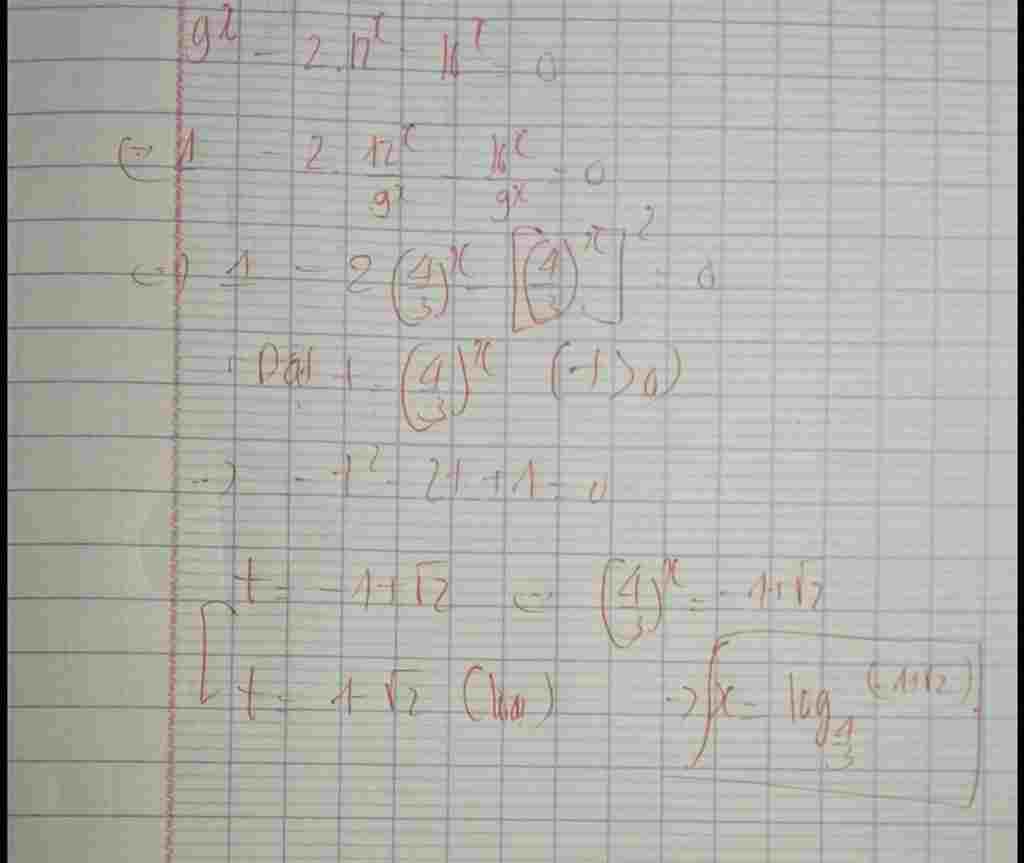 9^x - 2.12^x - 16^x = 0
(=) 1 - 2. 12^x/9^x - 16^x/9^x = 0
(=) 1 - 2 (4/3)^x - [(4/3)^x]^2 = 0
Đặt t = (4/3)^x (t > 0)
-> -t^2 - 2t + 1 = 0
[ t = -1+√2 (=) (4/3)^x = -1+√2
t = -1-√2 (loại) -> x = log_{4/3} (-1+√2)